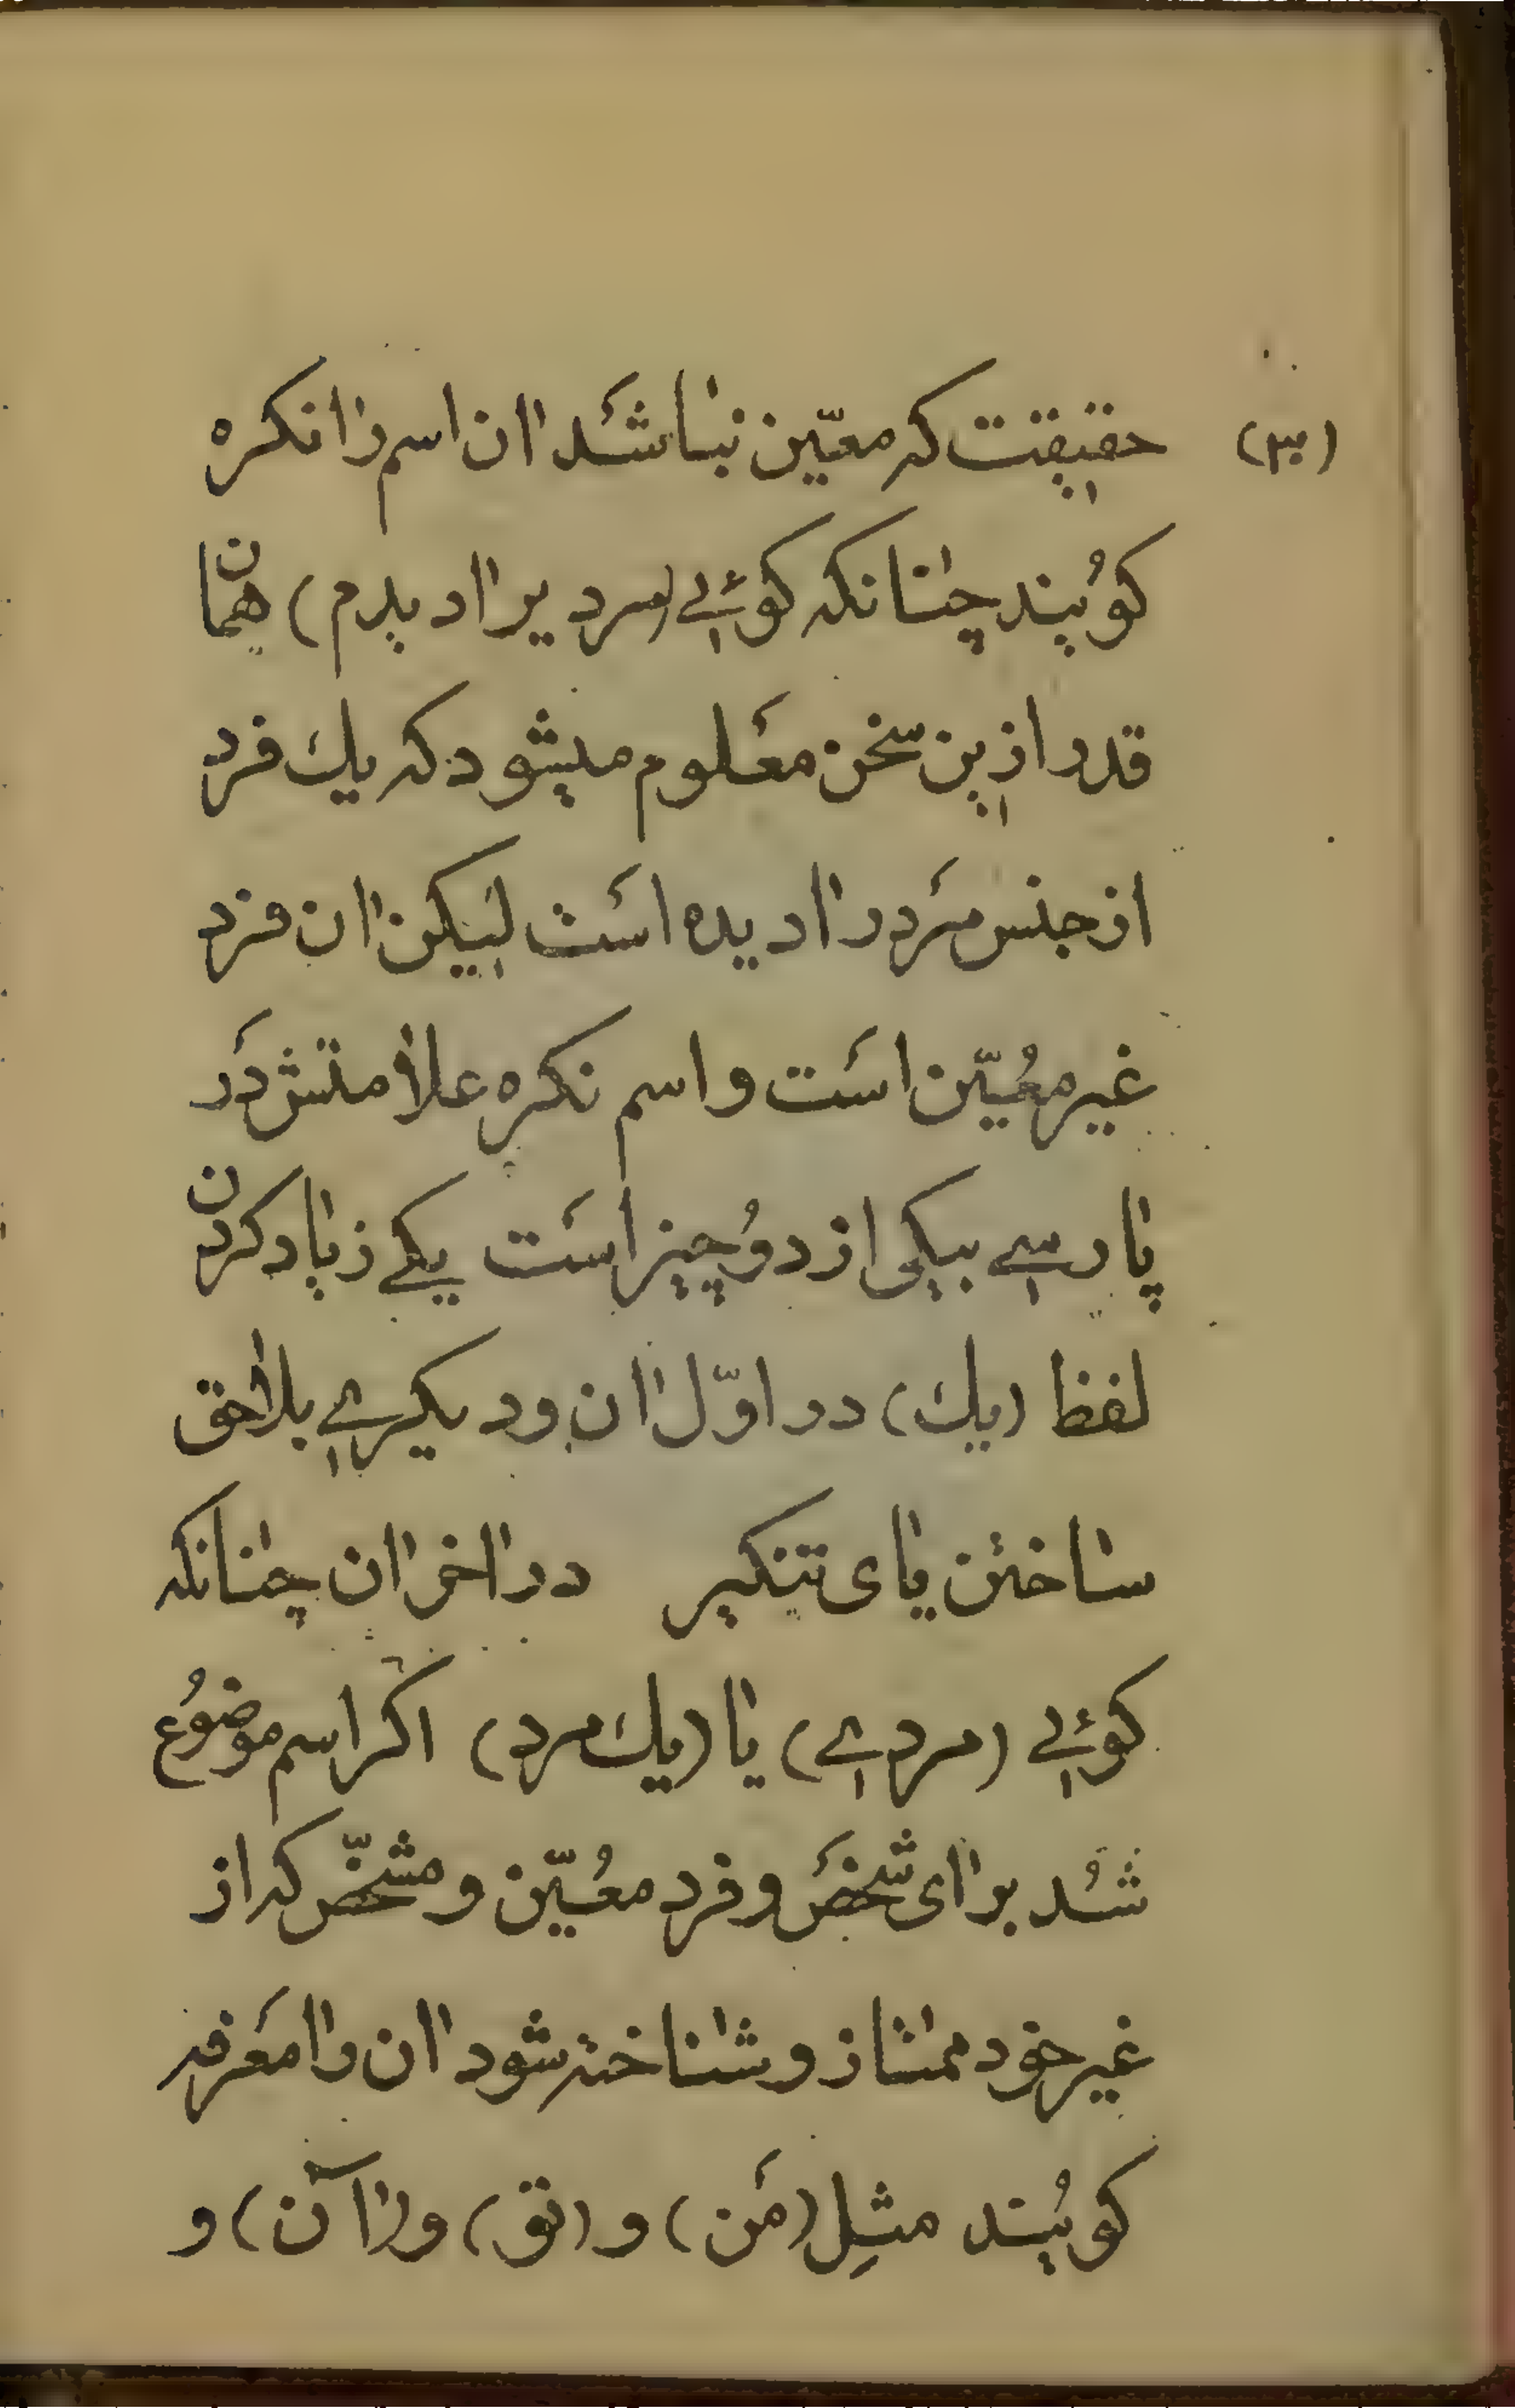 (۳۰) حقیقت که معیّن نباشد اان اسم را نکره
کوُیند چنانکه کوئی (مردیرا دیدم) همان
قدر ازین سخن معلوم میشود که یك فرد
از جنس مَرد را دیده اسَت لیکن اان فرد
غیر معُیّن اسَت و اسم نکره علامتش دَر
پارسی بیکی از دوُ چیز اسَت یکی زیاد کردن
لفظ (یك) در اوّل اان و دیکری بلاحق
ساختن یای تنکیر در ااخر اان چنانکه
کوئی (مردی) یا (یك مرد) اکر اسم موضوُع
شُد برای شخصَ و فرد معُیّن و مشخّص که از
غیر خود ممتاز و شناخته شود اان را معَرفه
کوُیند مثلِ (مَن) و (تو) و (اآن) و